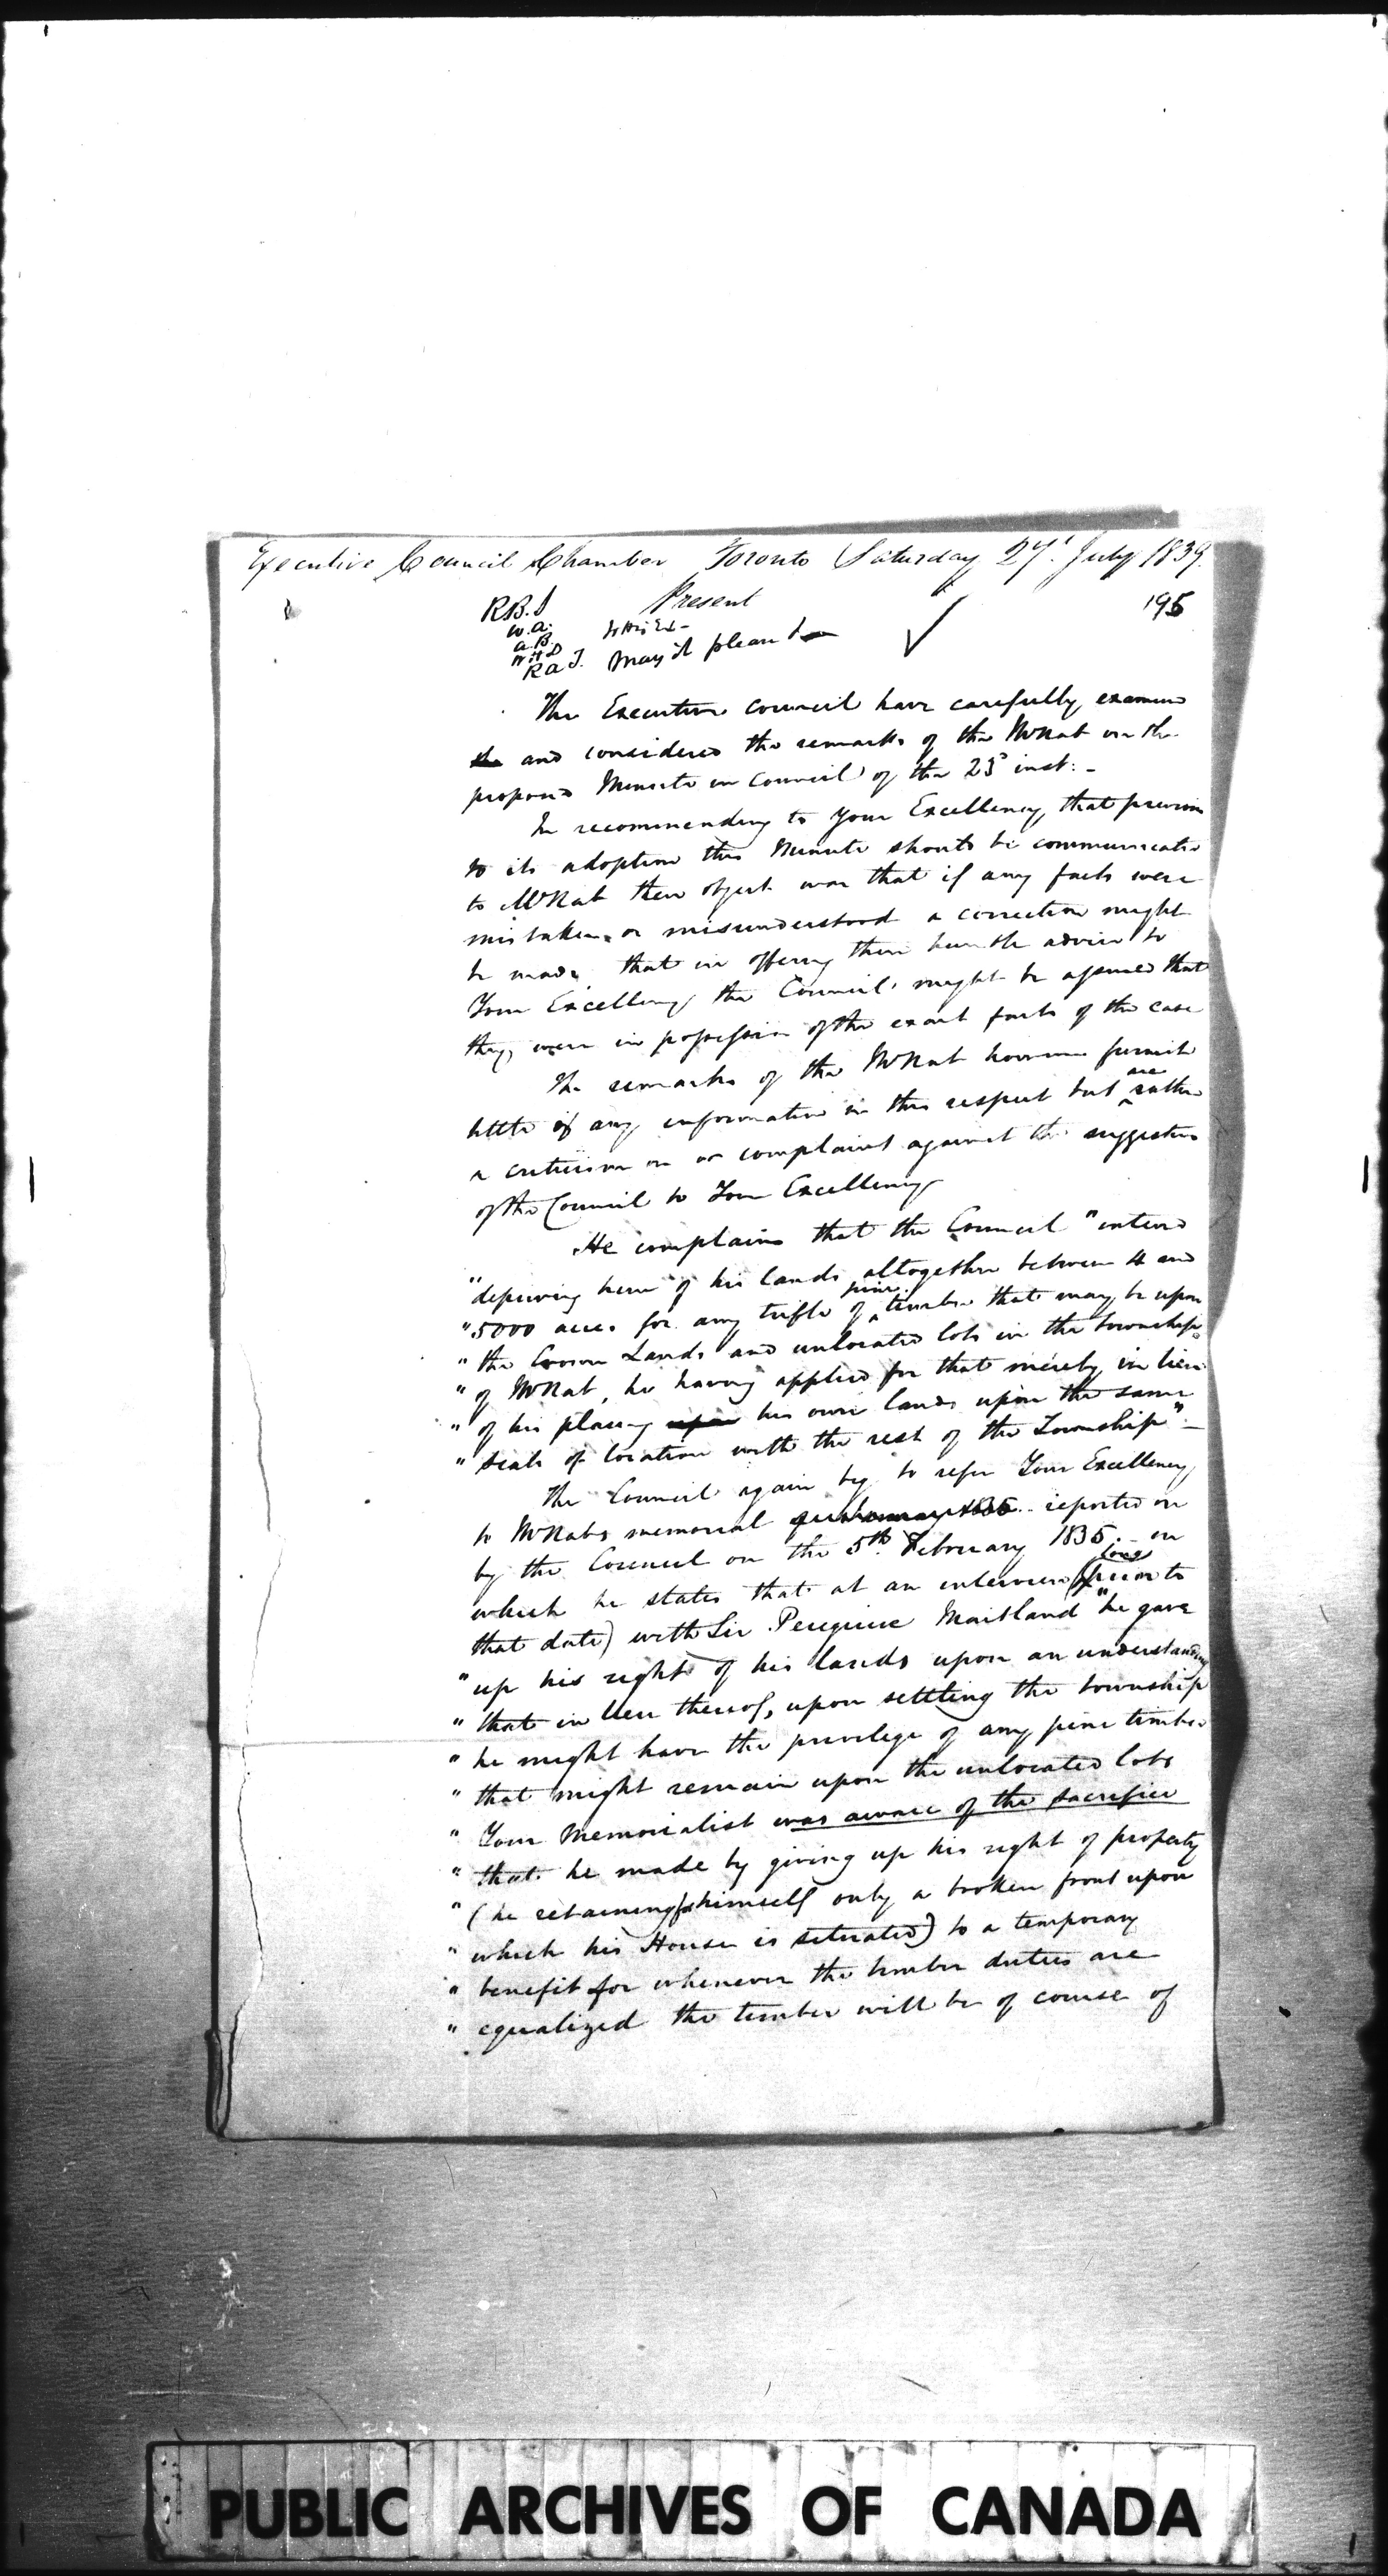 Executive Council Chamber Toronto Saturday 27. July 1839.
Present
195
R.B.S
W.A.
A.B.
W.H.D
R.A.T.
To His Ex-
May it please &
The Executive Council have carefully examined
and considered the remarks of the McNab on the
proposed Minute in Council of the 23d inst: -
In recommending to Your Excellency that previous
to its adoption this Minute should be communicated
to McNab their object was that if any facts were
mistaken or misunderstood a correction might
be made, that in offering their humble advice to
Your Excellency the Council might be assured that
they were in possession of the exact facts of the case
The remarks of the McNab however furnish
little if any information in this respect but are rather
a criticism on or complaint against the suggestion
of the Council to Your Excellency
He complains that the Council "intend
" depriving him of his lands altogether between 4 and
" 5000 acres for any trifle of pine timber that may be upon
" the Crown Lands and unlocated lots in the township
" of McNab, he having applied for that merely in lieu
" of his placing upon his own lands upon the same
" scale of location with the rest of the Township" -
The Council again beg to refer Your Excellency
to McNabs memorial reported on
by the Council on the 5th February 1835. in
which he states that at an interview (long prior to
that date) with Sir Peregrine Maitland "he gave
" up his right of his lands upon an understanding
" that in lieu thereof, upon settling the township
" he might have the privilege of any pine timber
" that might remain upon the unlocated lots
" Your Memorialist was aware of the sacrifice
" that he made by giving up his right of property
" (he retaining for himself only a broken front upon
" which his House is situated) to a temporary
" benefit for whenever the timber duties are
" equalized the timber will be of course of
PUBLIC ARCHIVES OF CANADA